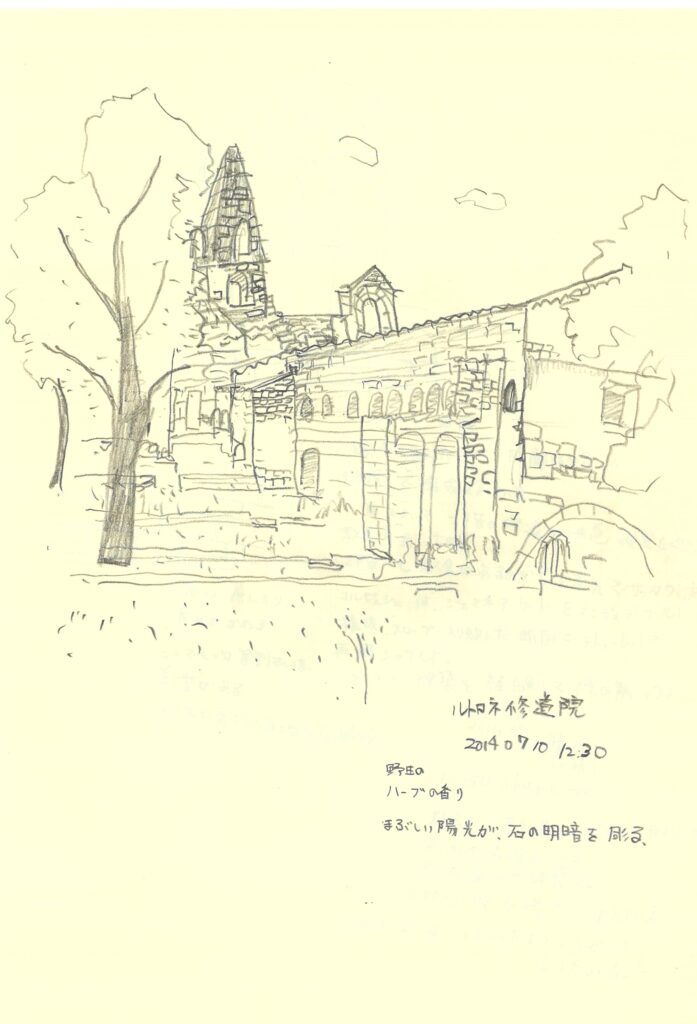 ルトロネ修道院
2014 07 10 12:30
野生の
ハーブの香り
まぶしい陽光が、石の明暗を彫る、